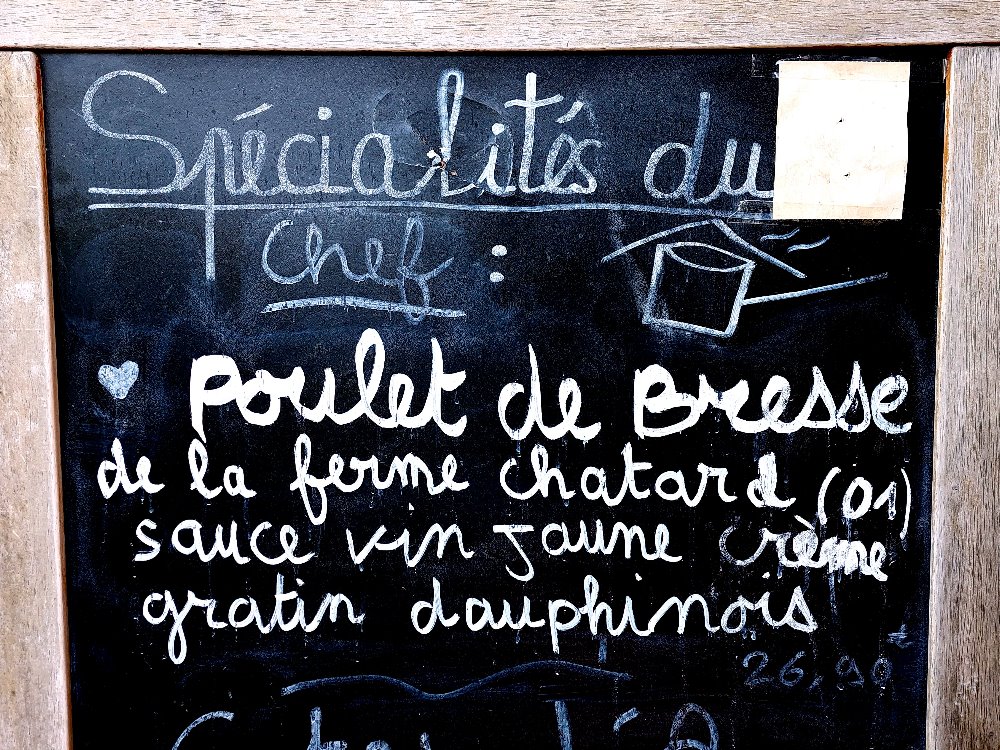 Spécialités du
Chef :
Poulet de Bresse
de la ferme chatard (01)
sauce vin Jaune crème
gratin dauphinois
26,90